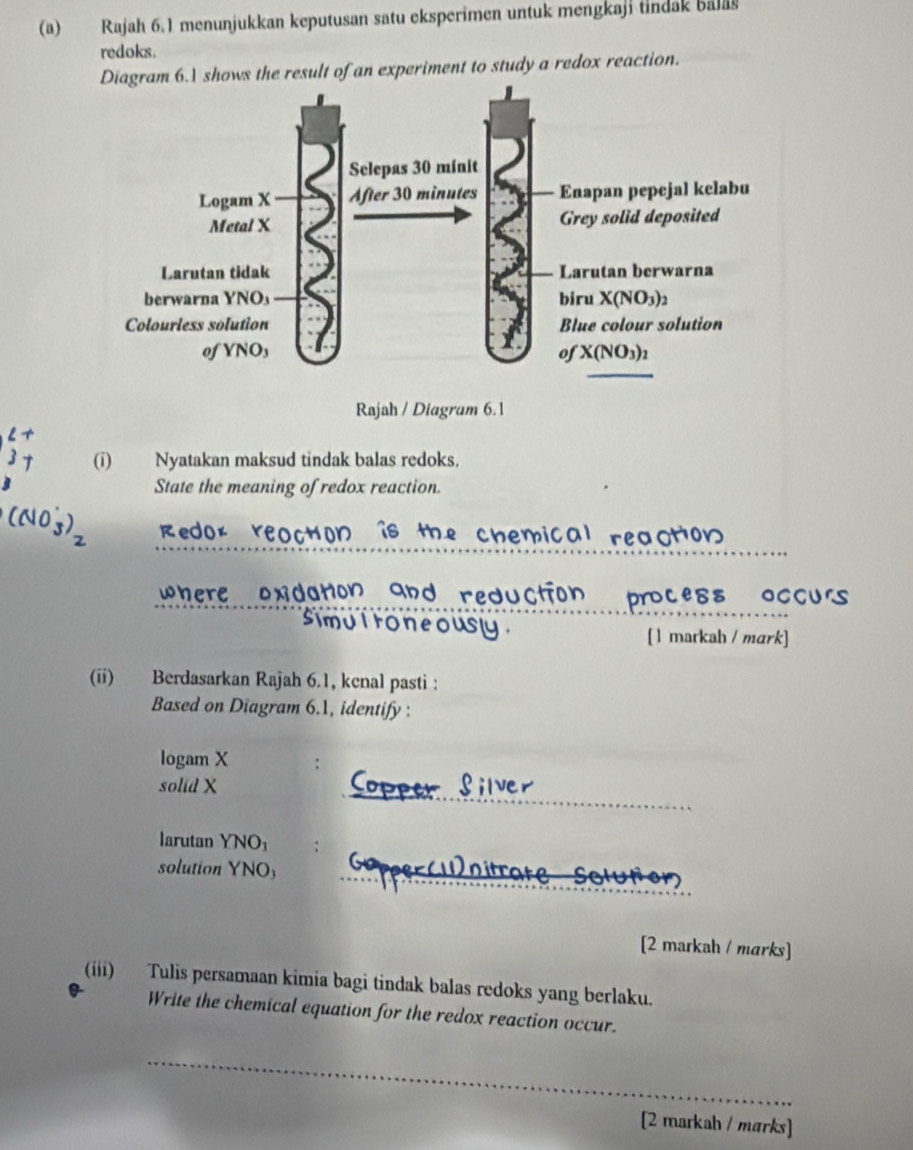 (a) Rajah 6.1 menunjukkan keputusan satu eksperimen untuk mengkaji tindak balas
redoks.
Diagram 6.1 shows the result of an experiment to study a redox reaction.
Selepas 30 minit
After 30 minutes
Logam X
Metal X
Larutan tidak
berwarna YNO₃
Colourless solution
of YNO₃
Enapan pepejal kelabu
Grey solid deposited
Larutan berwarna
biru X(NO₃)₂
Blue colour solution
of X(NO₃)₂
Rajah / Diagram 6.1
(i) Nyatakan maksud tindak balas redoks.
State the meaning of redox reaction.
(NO₃)₂
Redox reaction is the chemical reaction
where oxidation and reduction process occurs
simultoneously.
[1 markah / mark]
(ii) Berdasarkan Rajah 6.1, kenal pasti :
Based on Diagram 6.1, identify :
logam X :
solid X
Copper Silver
larutan YNO₃ :
solution YNO₃
Copper(II) nitrate solution
[2 markah / marks]
(iii) Tulis persamaan kimia bagi tindak balas redoks yang berlaku.
Write the chemical equation for the redox reaction occur.
[2 markah / marks]